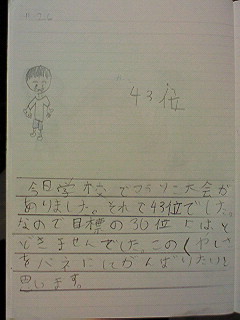 43位
今日学校でマラソン大会が
ありました。それで43位でした。
なので目標の30位には
できませんでした。このくやしさ
をバネにしてがんばりたいと
思います。